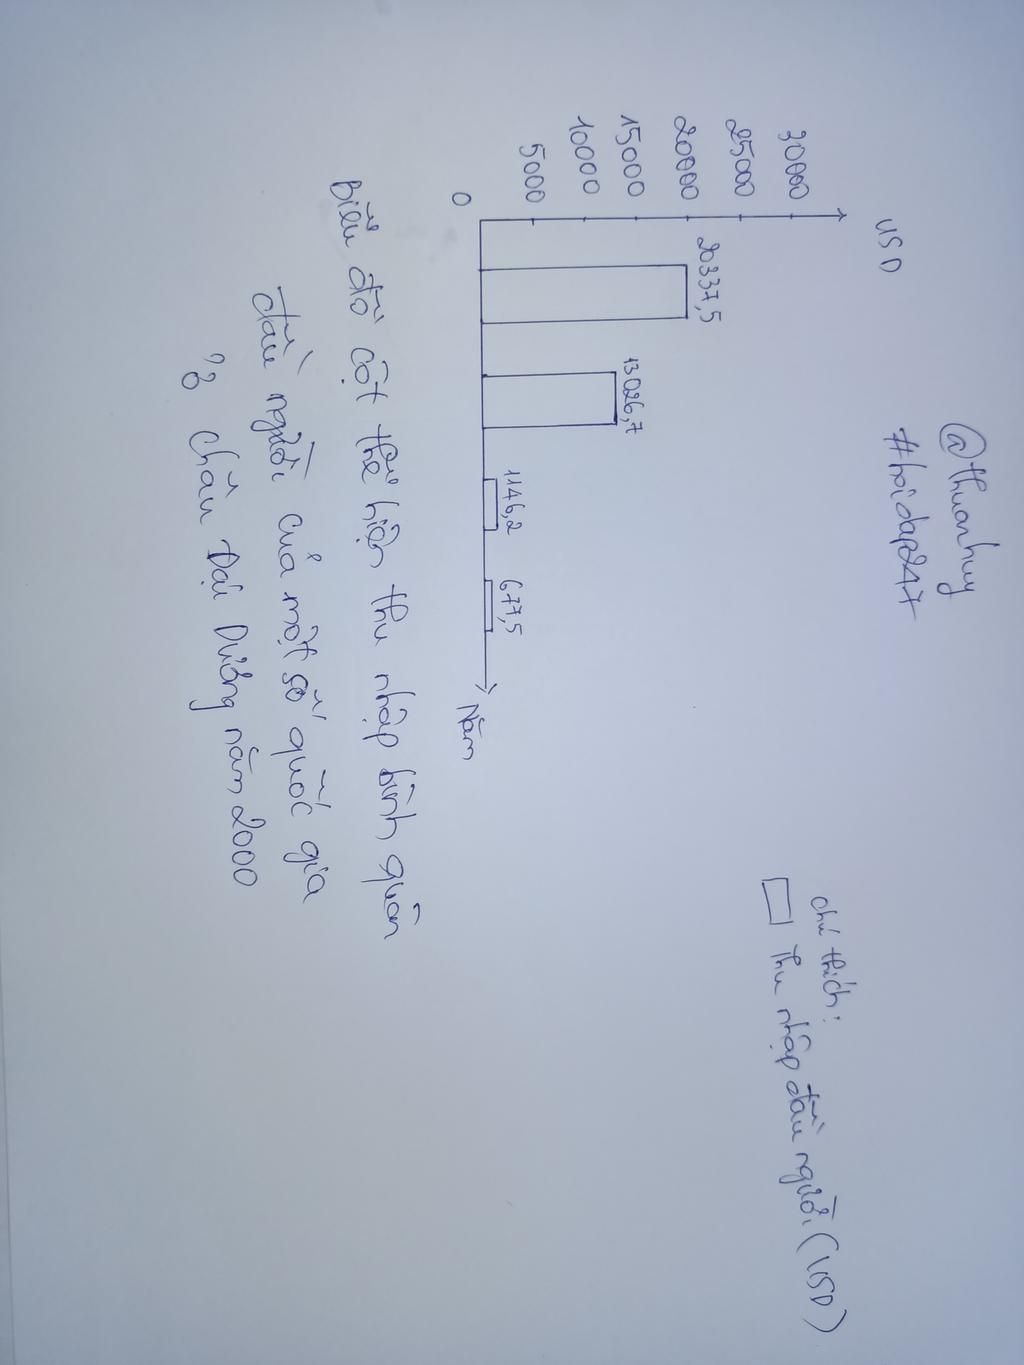 @thuanhuy
#hoidap247
USD
30000
25000
20000
15000
10000
5000
0
20337,5
13026,7
1146,2
677,5
Năm
chú thích:
Thu nhập đầu người (USD)
Biểu đồ cột thể hiện thu nhập bình quân
đầu người của một số quốc gia
ở Châu Đại Dương năm 2000